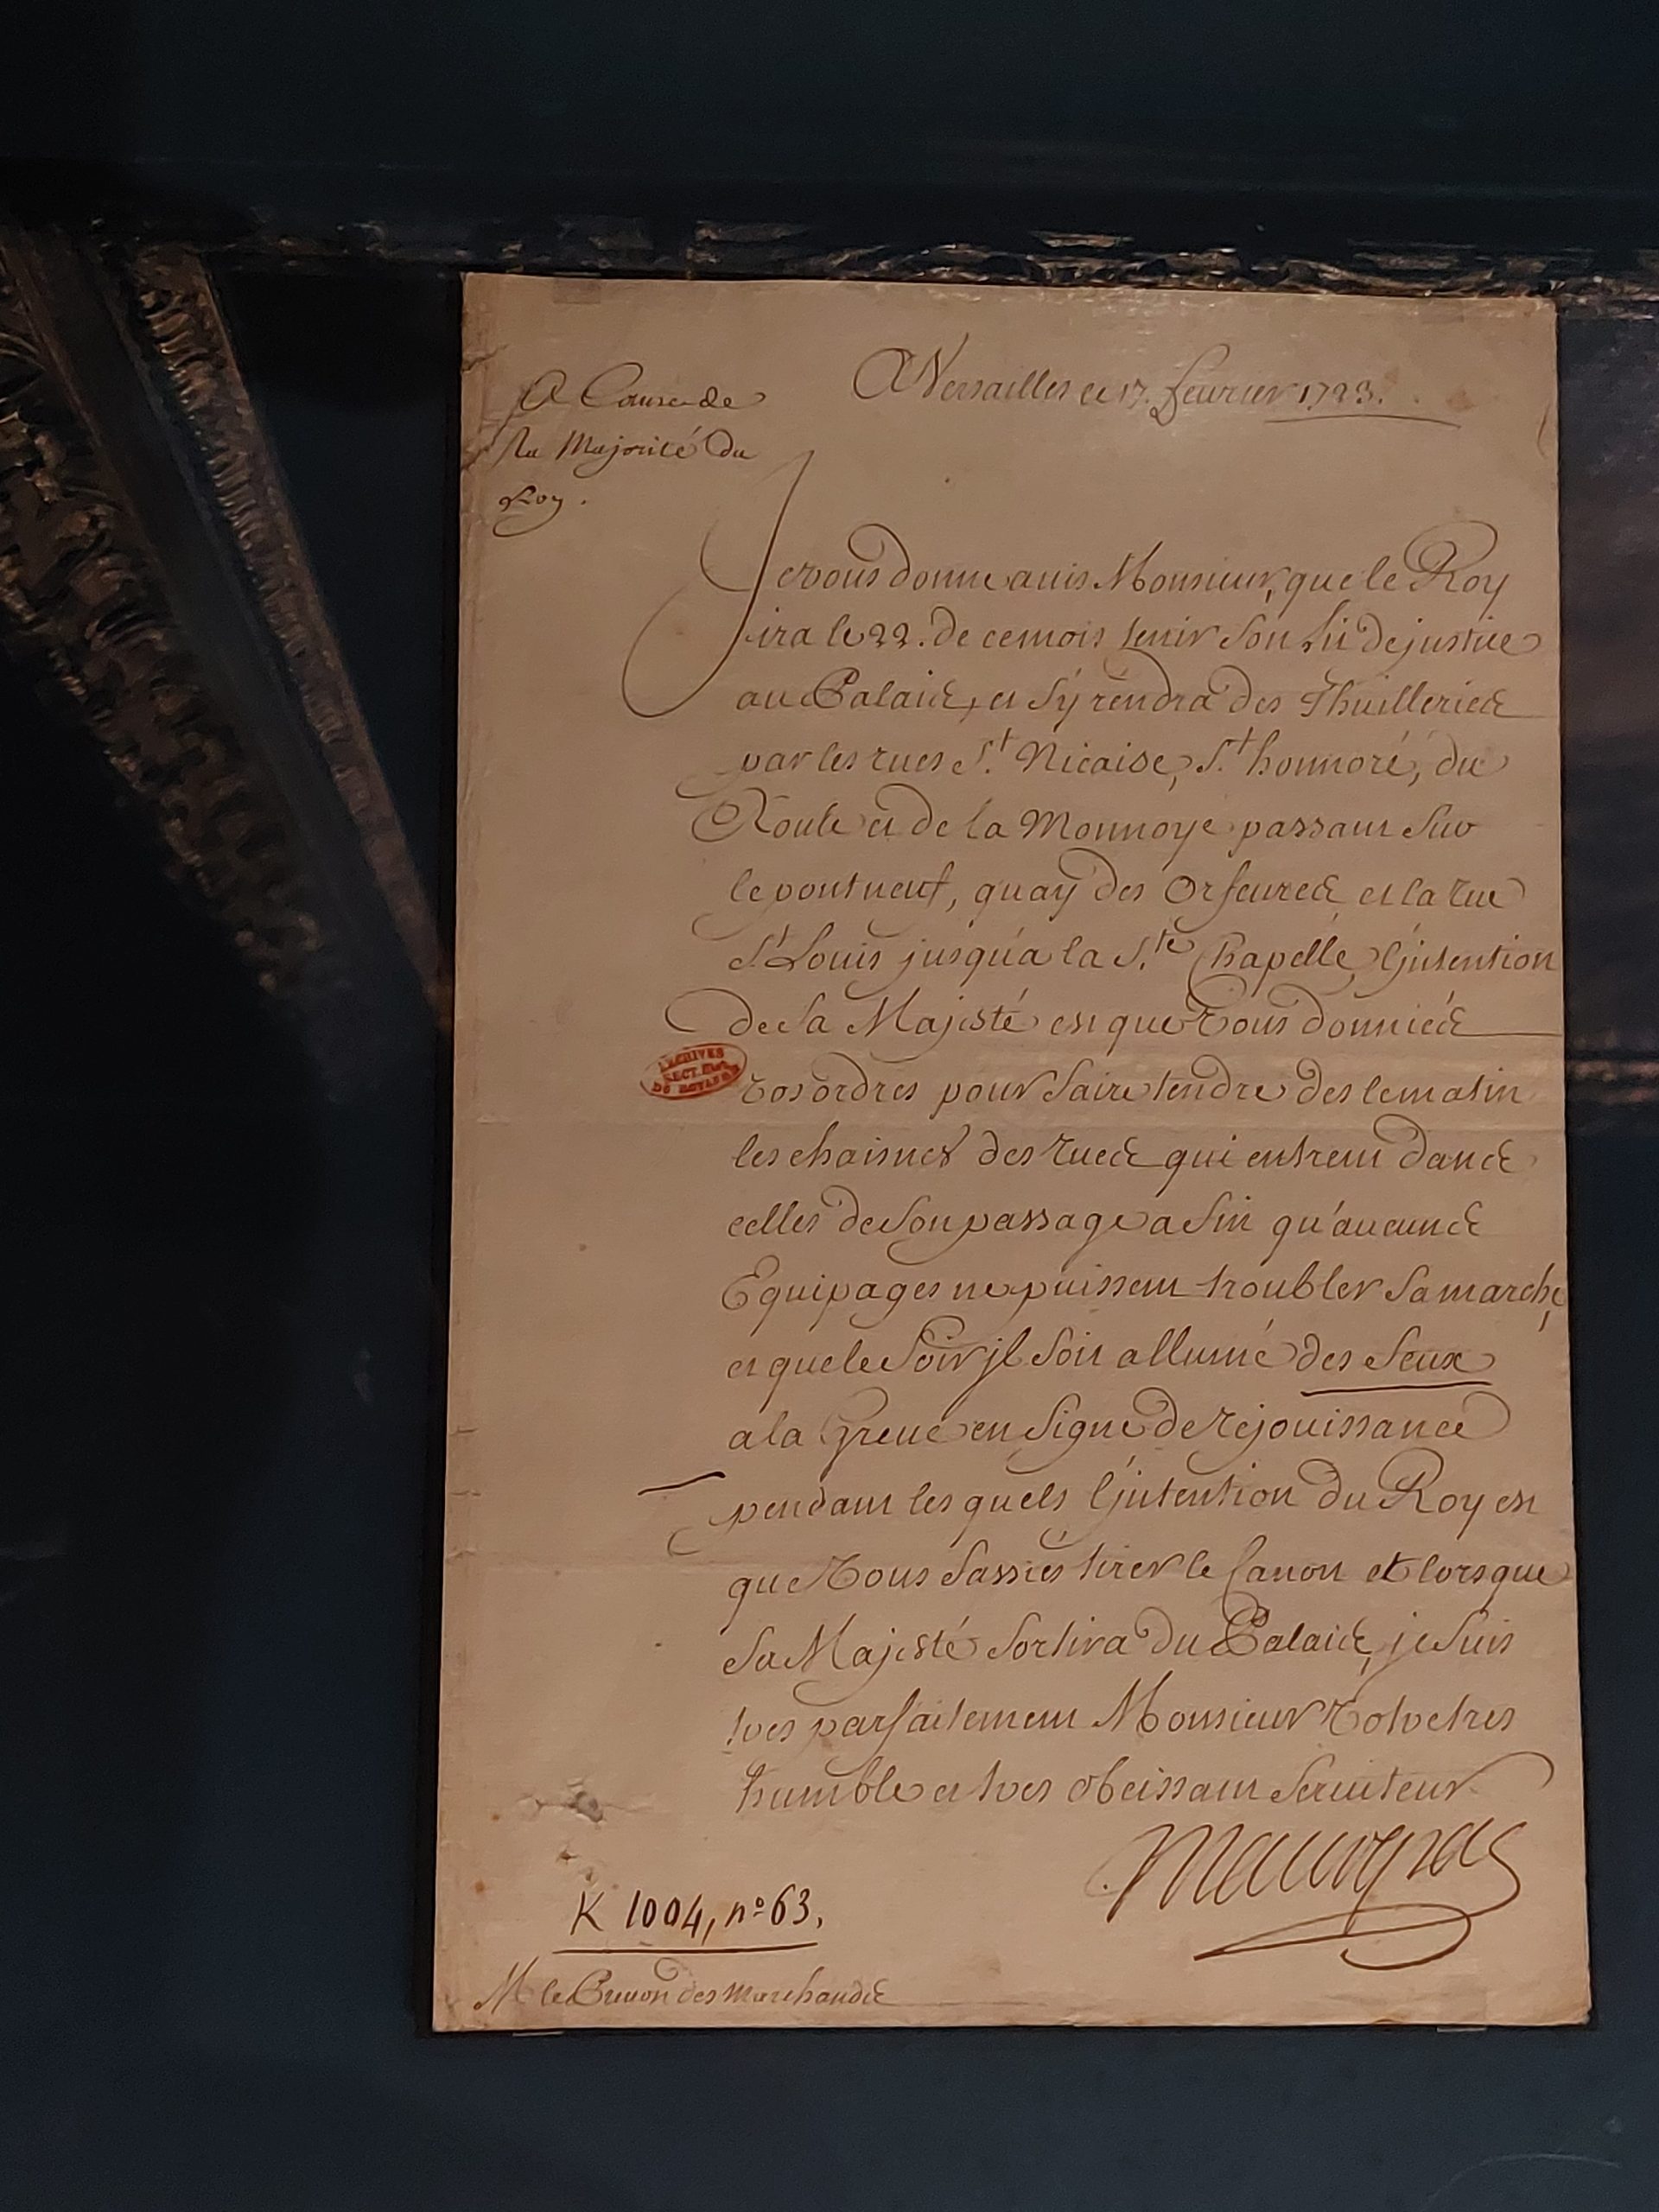 A Versailles le 17. feurier 1723.
A Cause de
la Majorité du
Roy.
Je vous donne auis Monsieur, que le Roy
ira le 22. de ce mois tenir son Lit de justice
au Palais, et s'y rendra des Thuilleries
par les rues S.t Nicaise, S.t honnoré, du
Roule et de la Monnoye passant sur
le pont neuf, quay des Orfeures et la rue
S.t Louis jusqu'a la S.te Chapelle, l'jntention
de sa Majesté est que vous donniés
vos ordres pour faire tendre des le matin
les chaisnes des rues qui entrent dans
celles de son passage afin qu'aucuns
Equipages ne puissent troubler sa marche,
et que le soir jl soit allumé des feux
a la Greue en signe de rejouissance
pendant les quels l'jntention du Roy est
que vous fassiés tirer le Canon et lorsque
sa Majesté sortira du Palais, je suis
tres parfaitement Monsieur Votre tres
humble et tres obeissant seruiteur
Maurepas
ARCHIVES
SECT. HIST.
DU ROYAUME
K 1004, nº 63.
M le Preuost des Marchands